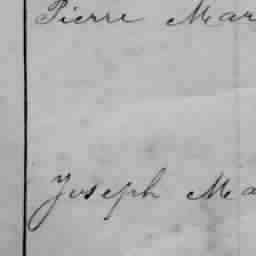 Pierre Mar
Joseph Ma